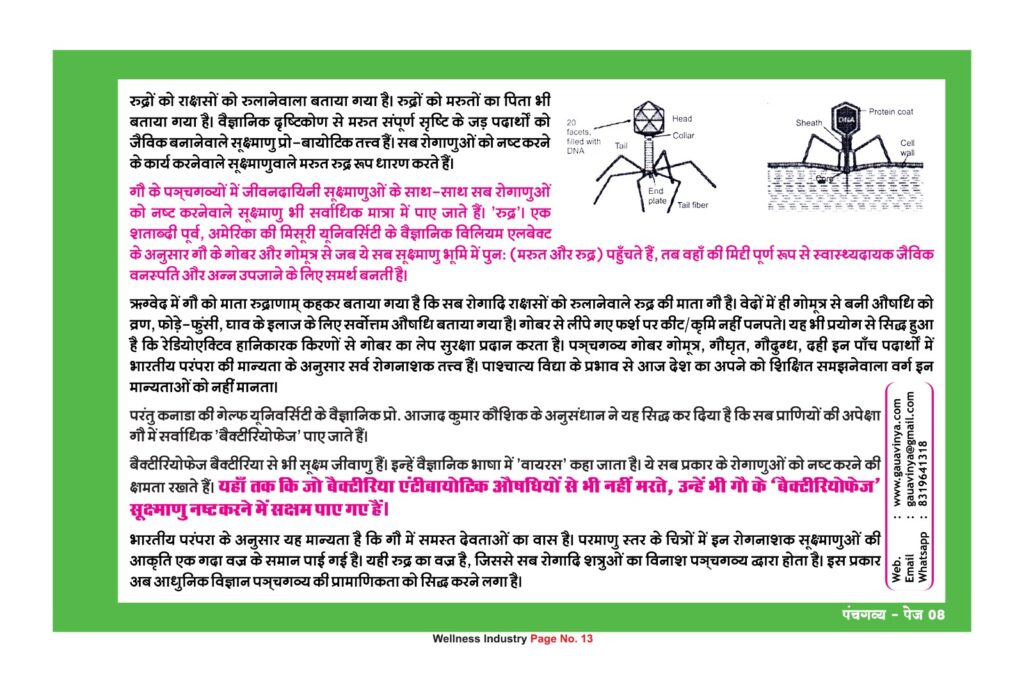 रुद्रों को राक्षसों को रुलानेवाला बताया गया है। रुद्रों को मरुतों का पिता भी
बताया गया है। वैज्ञानिक दृष्टिकोण से मरुत संपूर्ण सृष्टि के जड़ पदार्थों को
जैविक बनानेवाले सूक्ष्माणु प्रो-बायोटिक तत्त्व हैं। सब रोगाणुओं को नष्ट करने
के कार्य करनेवाले सूक्ष्माणुवाले मरुत रुद्र रूप धारण करते हैं।
गौ के पञ्चगव्यों में जीवनदायिनी सूक्ष्माणुओं के साथ-साथ सब रोगाणुओं
को नष्ट करनेवाले सूक्ष्माणु भी सर्वाधिक मात्रा में पाए जाते हैं। 'रुद्र'। एक
शताब्दी पूर्व, अमेरिका की मिसूरी यूनिवर्सिटी के वैज्ञानिक विलियम एलबेक्ट
के अनुसार गौ के गोबर और गोमूत्र से जब ये सब सूक्ष्माणु भूमि में पुन: (मरुत और रुद्र) पहुँचते हैं, तब वहाँ की मिट्टी पूर्ण रूप से स्वास्थ्यदायक जैविक
वनस्पति और अन्न उपजाने के लिए समर्थ बनती है।
20
facets,
filled with
DNA
Head
Collar
Tail
End
plate
Tail fiber
Protein coat
DNA
Sheath
Cell
wall
Core
ऋग्वेद में गौ को माता रुद्राणाम् कहकर बताया गया है कि सब रोगादि राक्षसों को रुलानेवाले रुद्र की माता गौ है। वेदों में ही गोमूत्र से बनी औषधि को
व्रण, फोड़े-फुंसी, घाव के इलाज के लिए सर्वोत्तम औषधि बताया गया है। गोबर से लीपे गए फर्श पर कीट/कृमि नहीं पनपते। यह भी प्रयोग से सिद्ध हुआ
है कि रेडियोएक्टिव हानिकारक किरणों से गोबर का लेप सुरक्षा प्रदान करता है। पञ्चगव्य गोबर गोमूत्र, गौघृत, गौदुग्ध, दही इन पाँच पदार्थों में
भारतीय परंपरा की मान्यता के अनुसार सर्व रोगनाशक तत्त्व हैं। पाश्चात्य विद्या के प्रभाव से आज देश का अपने को शिक्षित समझनेवाला वर्ग इन
मान्यताओं को नहीं मानता।
परंतु कनाडा की गेल्फ यूनिवर्सिटी के वैज्ञानिक प्रो. आजाद कुमार कौशिक के अनुसंधान ने यह सिद्ध कर दिया है कि सब प्राणियों की अपेक्षा
गौ में सर्वाधिक 'बैक्टीरियोफेज' पाए जाते हैं।
बैक्टीरियोफेज बैक्टीरिया से भी सूक्ष्म जीवाणु हैं। इन्हें वैज्ञानिक भाषा में 'वायरस' कहा जाता है। ये सब प्रकार के रोगाणुओं को नष्ट करने की
क्षमता रखते हैं। यहाँ तक कि जो बैक्टीरिया एंटीबायोटिक औषधियों से भी नहीं मरते, उन्हें भी गौ के 'बैक्टीरियोफेज'
सूक्ष्माणु नष्ट करने में सक्षम पाए गए हैं।
भारतीय परंपरा के अनुसार यह मान्यता है कि गौ में समस्त देवताओं का वास है। परमाणु स्तर के चित्रों में इन रोगनाशक सूक्ष्माणुओं की
आकृति एक गदा वज्र के समान पाई गई है। यही रुद्र का वज्र है, जिससे सब रोगादि शत्रुओं का विनाश पञ्चगव्य द्वारा होता है। इस प्रकार
अब आधुनिक विज्ञान पञ्चगव्य की प्रामाणिकता को सिद्ध करने लगा है।
Web. : www.gauavinya.com
Email : gauavinya@gmail.com
Whatsapp : 8319641318
पंचगव्य - पेज 08
Wellness Industry Page No. 13